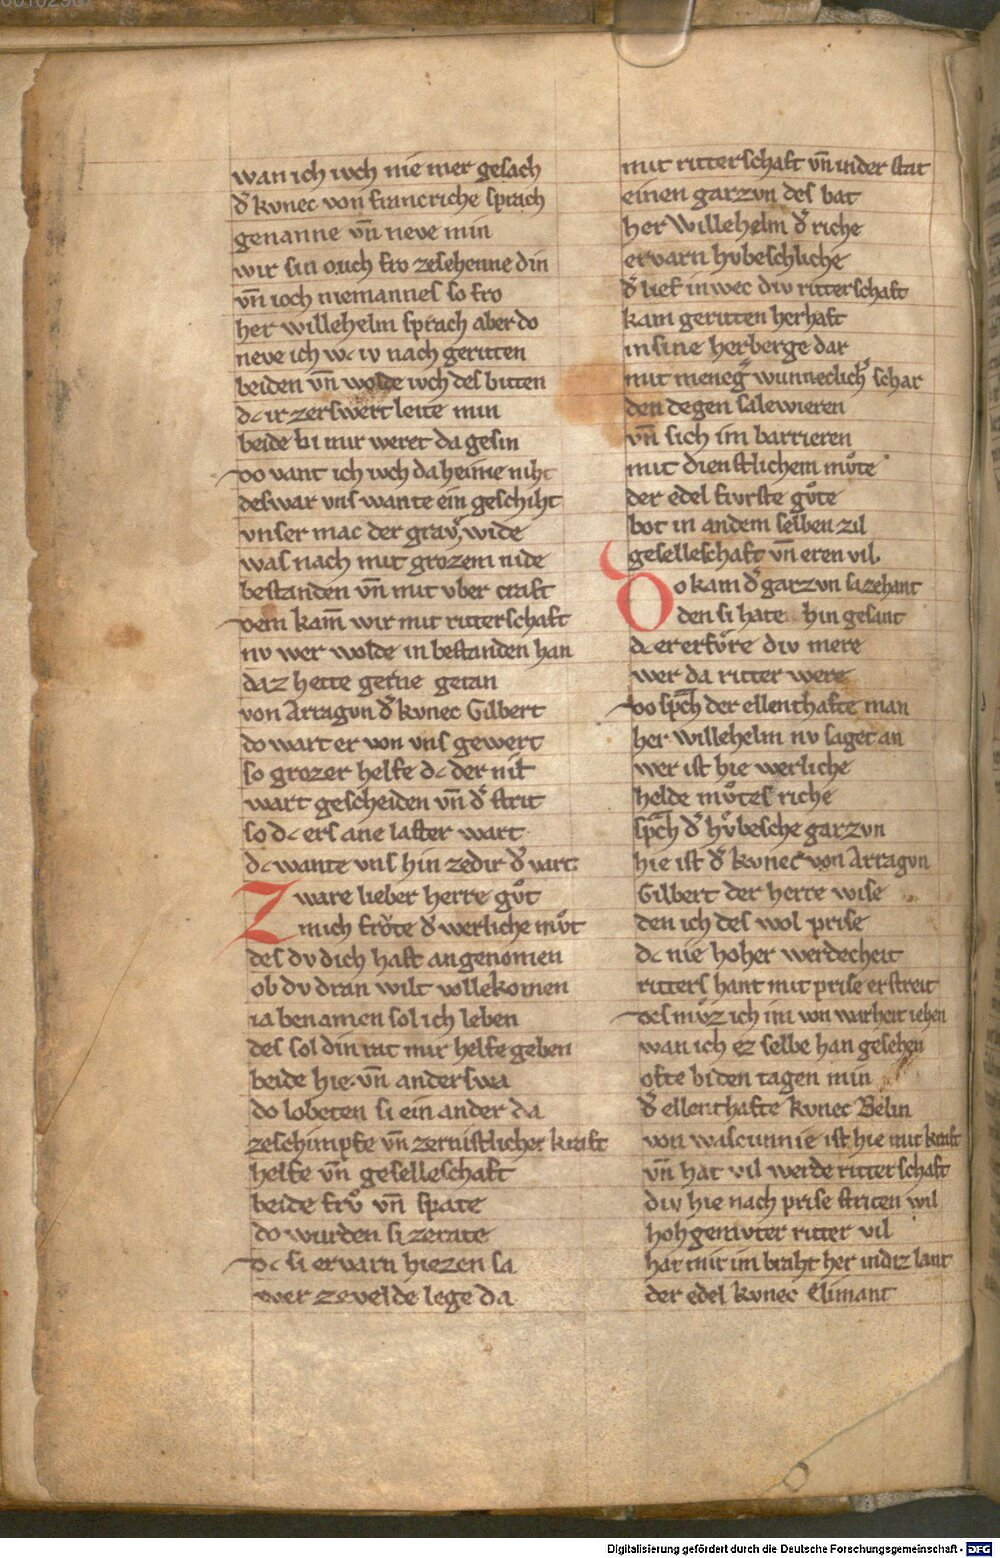 wan ich iv̂ch nie mer gesach
d̾ kvnec von francriche sprach
genanne vn̄ neve min
wir sin ouch fro zesehenne din
vn̄ ioch niemannes so fro
her willehelm sprach aber do
neve ich wc iv nach geritten
beiden vn̄ wolde ivch des bitten
dc ir zerswert leite min
beide bi mir weret da gesin
vo vant ich ivch da heime niht
deswar vns wante ein geschiht
vnser mac der grav̾ wide
was nach mit grozem nide
bestanden vn̄ mit vber craft
dem kam̄ wir mit ritterschaft
nv wer wolde in bestanden han
daz hette gerne getan
von Arragun d̾ kvnec Gilbert
do wart er von vns gewert
so grozer helfe dc der nit
wart gescheiden vn̄ d̾ strit
so dc ers ane laster wart
dc wante vns hin zedir d̾ vart
Zware lieber herre gůt
mich frŏte d̾ werliche můt
des dv dich hast angenomen
ob dv dran wilt vollekomen
ia benamen sol ich leben
des sol din rat mir helfe geben
beide hie. vn̄ anderswa
do lobeten si ein ander da
zeschimpfe vn̄ zernistlicher kraft
helfe vn̄ geselleschaft
beide frů vn̄ spate
do wurden si zerate
dc si ervarn hiezen sa
wer zevelde lege da
mit ritterschaft vn̄ inder stat
einen garzvn des bat
her Willehelm d̾ riche
ervarn hvbeschliche
d̾ lief inwec div ritterschaft
kam geritten herhaft
in sine herberge dar
mit meneg̾ wunneclich̾ schar
den degen salewieren
vn̄ sich im barrieren
mit dienstlichem můte
der edel furste gůte
bot in andem selben zil
geselleschaft vn̄ eren vil.
Do kam d̾ garzvn sazehant
den si hate hin gesant
dc er erfůre div mere
wer da ritter were
vo sp̄ch der ellenthafte man
her willehelm nv saget an
wer ist hie werliche
helde můtes riche
sp̄ch d̾ hv̊besche garzvn
hie ist d̾ kvnec von Arragun
Gilbert der herre wise
den ich des wol prise
dc nie hoher werdecheit
ritters hant mit prise erstreit
des můz ich im von warheit iehen
wan ich ez selbe han gesehen
ofte biden tagen min
d̾ ellenthafte kvnec Belin
von wascunnie ist hie mit kraft
vn̄ hat vil werde ritterschaft
div hie nach prise striten wil
hohgemvter ritter vil
hat mit im braht her indiz lant
der edel kvnec Elimant
Digitalisierung gefördert durch die Deutsche Forschungsgemeinschaft - DFG